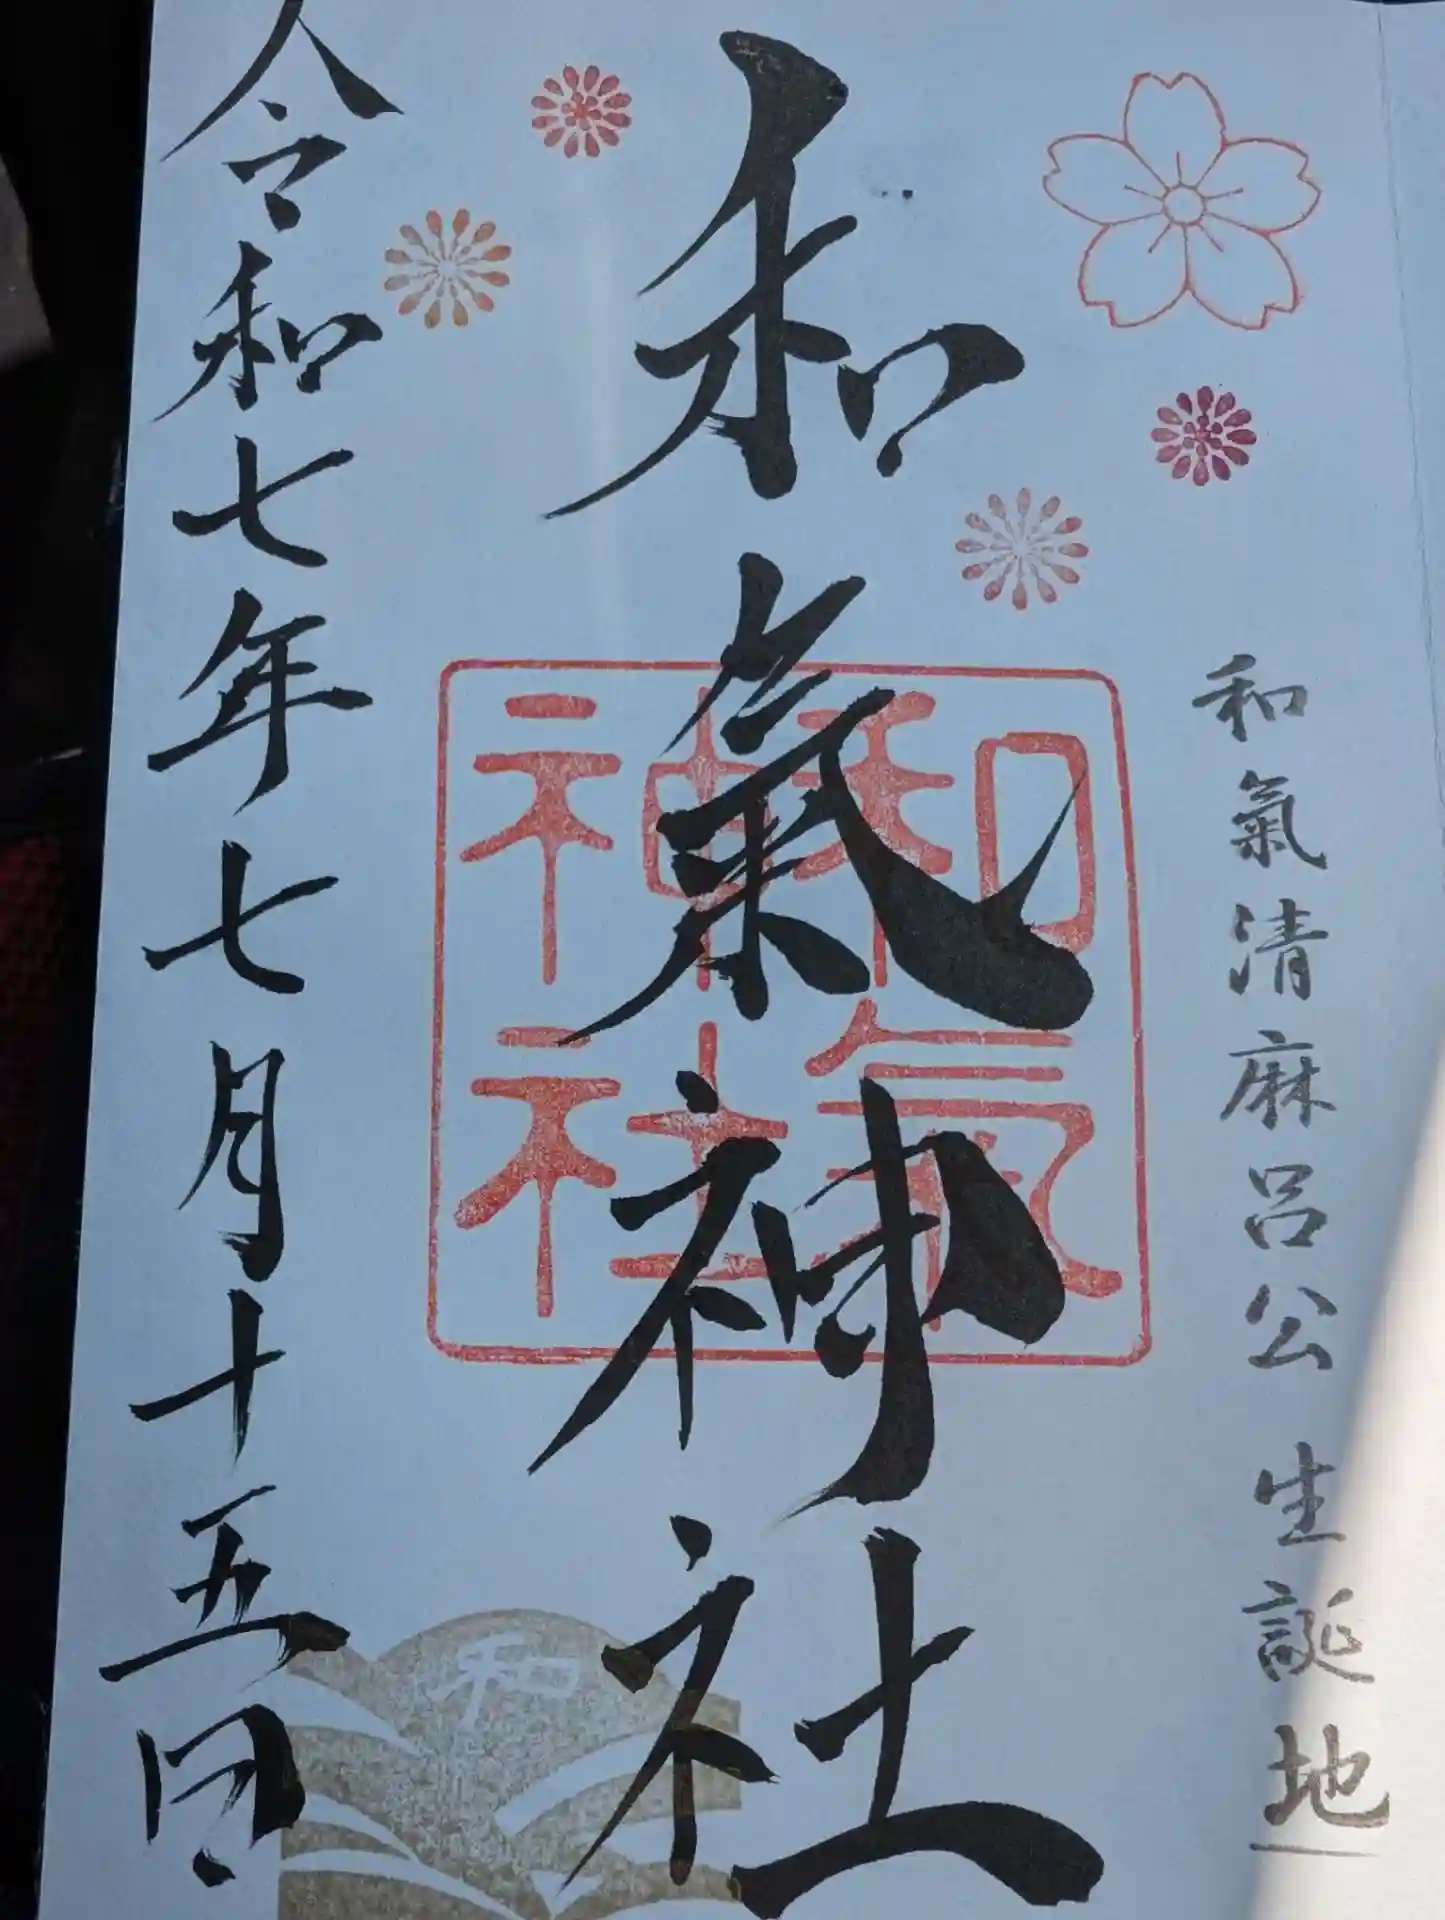 和氣清麻呂公生誕地
和氣神社
和氣
神社
令和七年七月十五日
和